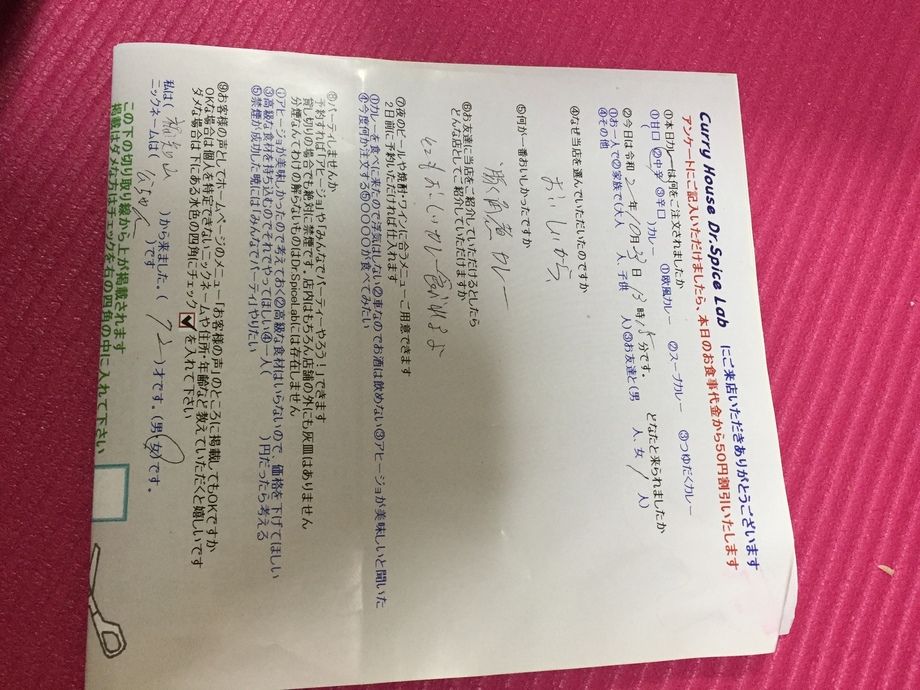 Curry House Dr.Spice Lab にご来店いただきありがとうございます
アンケートにご記入いただけましたら、本日のお食事代金から50円割引いたします
①本日カレーは何をご注文されましたか ①欧風カレー ②スープカレー ③つゆだくカレー
①甘口 ②中辛 ③辛口
( )カレー
②今日は令和2年10月 日13時 分です。 どなたと来られましたか
①お一人で②家族で(大人 人,子供 人)③お友達と(男 人、女 人)
④その他
④なぜ当店を選んでいただいたのですか
おいしいから
⑤何が一番おいしかったですか
カレー
⑥お友達に当店をご紹介していただけるとしたら
どんな店としてご紹介していただけますか
おいしいカレー
⑦夜のビールや焼酎・ワインに合うメニューご用意できます
2日前に予約いただければ仕入れます
①カレーを食べに来たので浮気はしない②車なのでお酒は飲めない③アヒージョが美味しいと聞いた
④今度何か注文する⑤〇〇〇〇が食べてみたい
⑧パーティしませんか
予約すれば「アヒージョや「みんなでパーティーやろう!」できます
貸し切りの場合でも絶対に禁煙です。店内はもちろん店舗の外にも灰皿はありません
分煙なんてわけの解らないものはDr.SpiceLabには存在しません
①アヒージョが美味しかったので考えておく②高級な食材はいらないので、価格を下げてほしい
③高級な食材を持ち込むのでそれでやってほしい④一人( )円だったら考える
⑤禁煙が成功した暁には「みんなでパーティ」やりたい
⑨お客様の声としてホームページのメニュー「お客様の声」のところに掲載してもOKですか
OKな場合は個人を特定できないニックネームや住所・年齢など教えていただくと嬉しいです
ダメな場合は下にある水色の四角にチェック✓を入れて下さい
私は( )から来ました。( 72 )才です。(男・女)です。
ニックネームは( )です
この下の切り取り線から上が掲載されます
掲載はダメな方はチェックを右の四角の中に入れて下さい